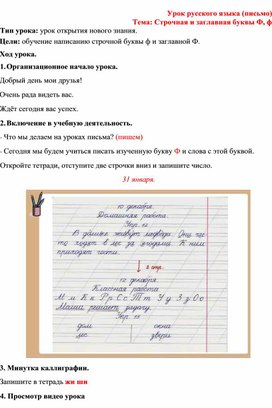 Урок русского языка (письмо)
Тема: Строчная и заглавная буквы Ф, ф
Тип урока: урок открытия нового знания.
Цели: обучение написанию строчной буквы ф и заглавной Ф.
Ход урока.
1.Организационное начало урока.
Добрый день мои друзья!
Очень рада видеть вас.
Ждёт сегодня вас успех.
2.Включение в учебную деятельность.
- Что мы делаем на уроках письма? (пишем)
- Сегодня мы будем учиться писать изученную букву Ф и слова с этой буквой.
Откройте тетради, отступите две строчки вниз и запишите число.
31 января.
10 декабря.
Домашняя работа.
Упр. 12
В домике живут медведи. Они час-
то ходят в лес за ягодами. К ним
приходят гости.
2 стр.
12 декабря.
Классная работа.
М м К к Р р С с Т т У у З з О о
Маша решает задачу.
Упр. 15
дом окна
лес звери
3. Минутка каллиграфии.
Запишите в тетрадь жи ши
4. Просмотр видео урока